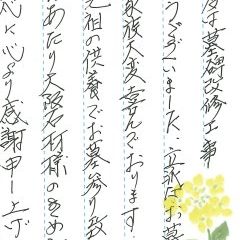 度は墓碑改修工事
うございました。立派なお墓
家族大変喜んでおります
先祖の供養でお墓参り致
あたり大阪石材様のきめ
心に心より感謝申し上げ